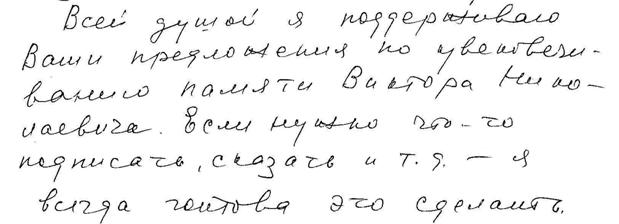 Всей душой я поддерживаю
Ваши предложения по увековечи-
ванию памяти Виктора Нико-
лаевича. Если нужно что-то
подписать, сказать и т.д. – я
всегда готова это сделать.